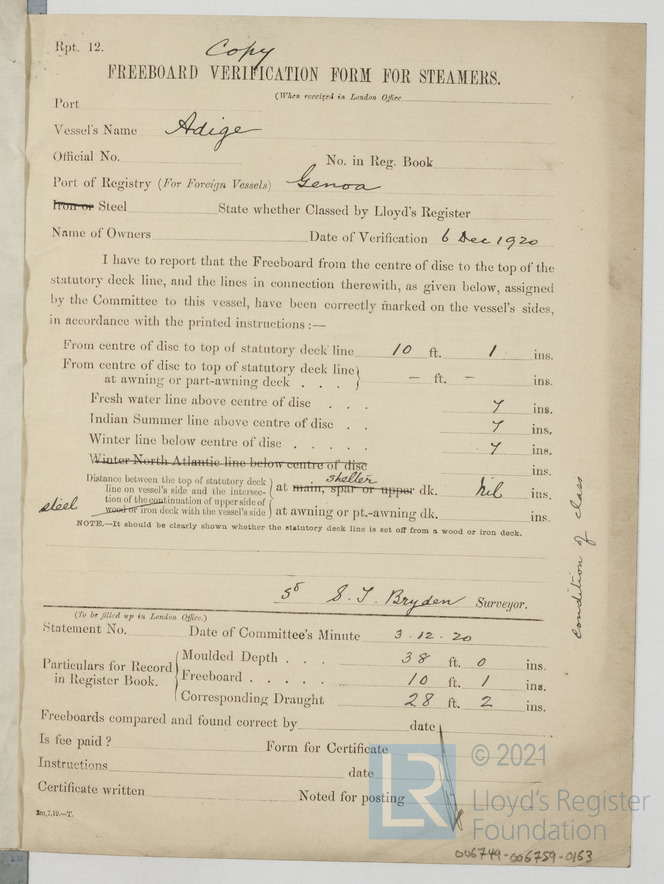 Rpt. 12.
Copy
FREEBOARD VERIFICATION FORM FOR STEAMERS.
(When received in London Office
Port
Vessel's Name Adige
Official No. No. in Reg. Book
Port of Registry (For Foreign Vessels) Genoa
Iron or Steel State whether Classed by Lloyd's Register
Name of Owners Date of Verification 6 Dec 1920
I have to report that the Freeboard from the centre of disc to the top of the
statutory deck line, and the lines in connection therewith, as given below, assigned
by the Committee to this vessel, have been correctly marked on the vessel's sides,
in accordance with the printed instructions :—
From centre of disc to top of statutory deck line 10 ft. 1 ins.
From centre of disc to top of statutory deck line
at awning or part-awning deck . . . – ft. – ins.
Fresh water line above centre of disc . . . 7 ins.
Indian Summer line above centre of disc . . 7 ins.
Winter line below centre of disc . . . . . 7 ins.
Winter North Atlantic line below centre of disc ins.
Distance between the top of statutory deck
line on vessel's side and the intersec-
tion of the continuation of upper side of
steel wood or iron deck with the vessel's side
shelter
at main, spar or upper dk. Nil ins.
at awning or pt.-awning dk. ins.
NOTE.—It should be clearly shown whether the statutory deck line is set off from a wood or iron deck.
condition of class
S. T. Bryden Surveyor.
(To be filled up in London Office.)
Statement No. Date of Committee's Minute 3.12.20
Particulars for Record
in Register Book.
Moulded Depth . . . 38 ft. 0 ins.
Freeboard . . . . . 10 ft. 1 ins.
Corresponding Draught 28 ft. 2 ins.
Freeboards compared and found correct by date
Is fee paid ? Form for Certificate
Instructions date
Certificate written Noted for posting
2m,7,19.—T.
LR
© 2021
Lloyd's Register
Foundation
006749-006759-0163